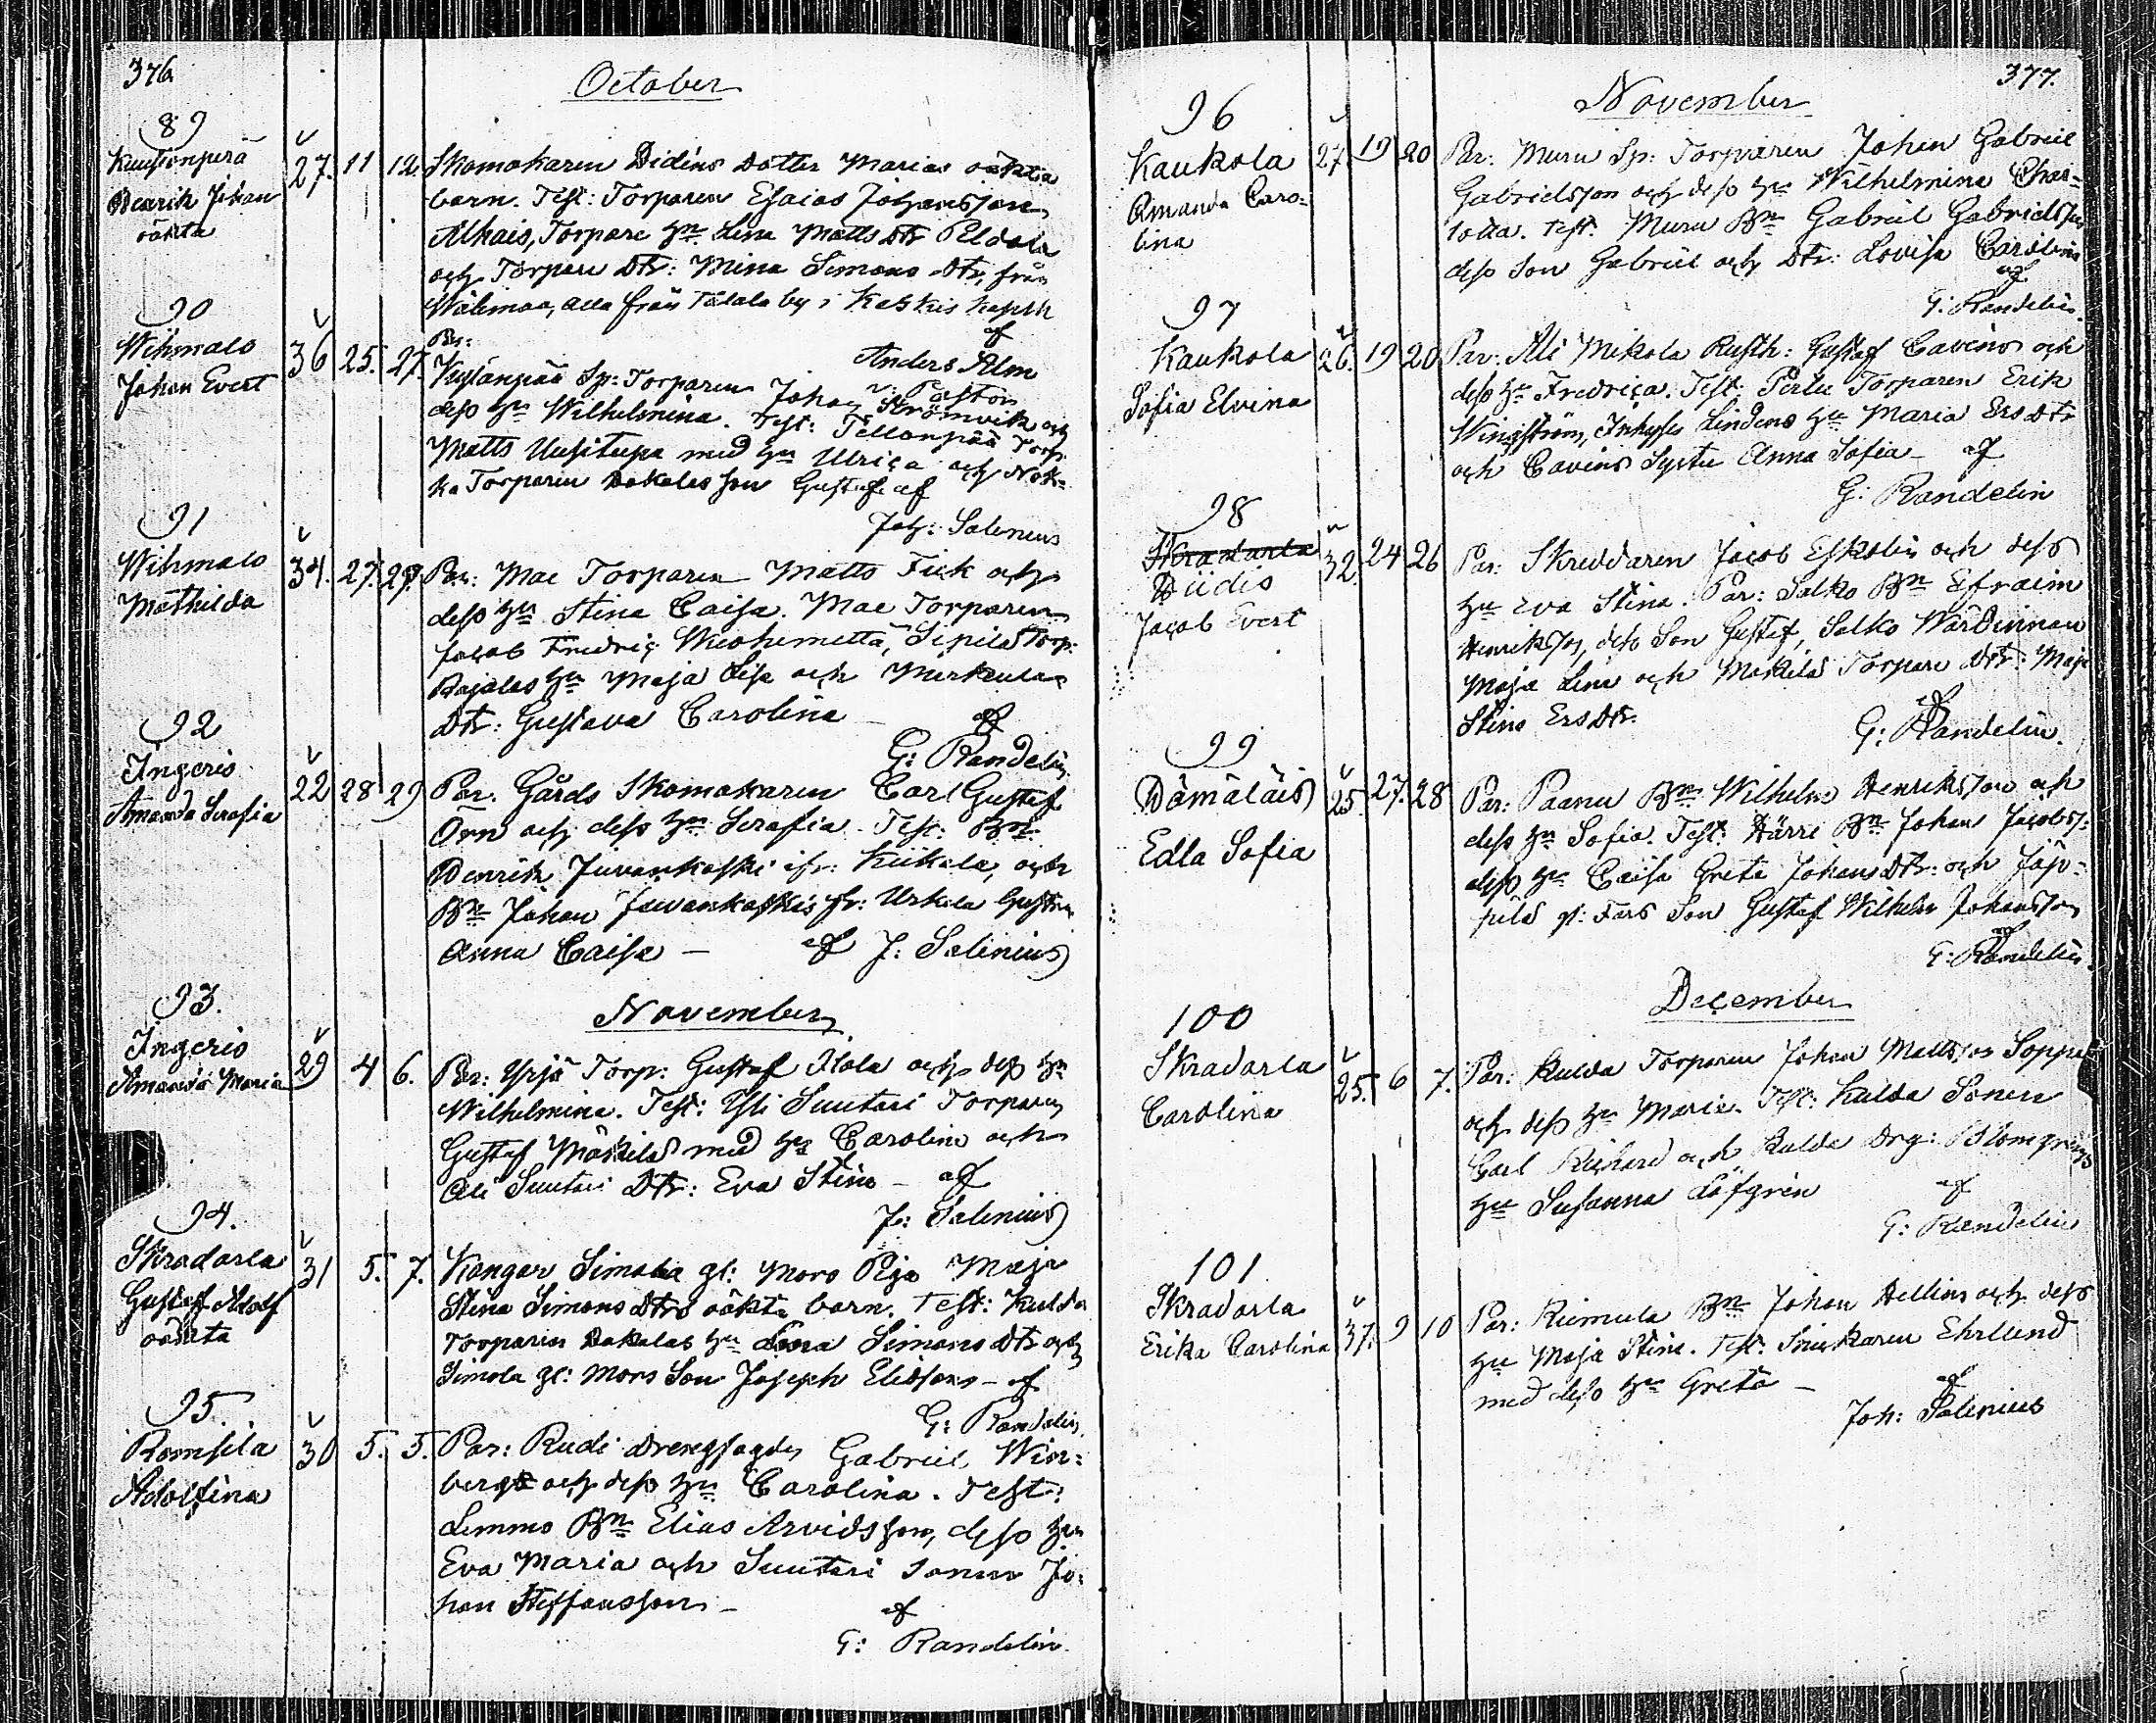 376
October
89
Henrik Johan
oäkta
27. 11 12.
Skomakaren Didins dotter Marias oäkta
barn. Test: Torparen Esaias Johansson
Alhais, Torpare hu Lena Matts Dtr
och Torpare Dtr: Mina Simons Dtr, från
alla från Tälala by i
af
Anders Alm
v: Pastor
90
Wihmalo
Johan Evert
36 25. 27.
Par:
Sp: Torparen Johan Strömvik och
dess hu Wilhelmina. Test: Tellonpää Torp.
Matts Uusitupa med hu Ulrica och Nok-
ka Torparen Kokalas son Gustaf af
Joh: Salenius
91
Wihmalo
Mathilda
34. 27. 29.
Par: Mae Torparen Matts Fick och
dess hu Stina Caisa. Mae Torparen
Jacob Fredric Sipilä Torp:
Rajalas hu Maja Lisa och
Dtr: Gustava Carolina
af
G: Randelin
92
Ingeris
Amanda Serafia
22 28 29
Par. Gårds Skomakaren Carl Gustaf
Örn och dess hu Serafia. Test: Bn
Henrik Juvankoski ifr: Kiikala, och
Bn Johan Juvankoskis fr: Urkola hustru
Anna Caisa — af J: Salinius
93.
November
Ingeris
Amanda Maria
29 4 6.
Par: Yrjä Torp: Gustaf Itola och dess hu
Wilhelmina. Test: Yli Suutari Torparen
Gustaf Mäkilä med hu Carolina och
Ali Suutari Dtr: Eva Stina — af
J: Salinius
94.
Skradarla
Gustaf Adolf
oäkta
31 5. 7.
Kangar Simola gl: Mors Piga Maja
Stina Simons Dtrs oäkta barn. Test: Kulda
Torparen Kokalas hu Lena Simons Dtr och
Simola gl: Mors Son Joseph Eliasson — af
G: Randelin
95.
Romsila
Adolfina
30 5. 5.
Par: Rudi drengfogden Gabriel Win-
berg och dess hu Carolina. Test:
Lemmo Bn Elias Arvidsson, dess hu
Eva Maria och Suutari sonen Jo-
han Steffansson —
af
G: Randelin
377.
November
96
Kaukola
Amanda Caro-
lina
27. 19 20
Par: Muru Sp: Torparen Johan Gabriel
Gabrielsson och dess hu Wilhelmina Char-
lotta. Test. Muru Bn Gabriel Gabrielsson
dess Son Gabriel och Dtr: Lovisa Carolina
af
G: Randelin.
97
Kaukola
Sofia Elvina
26. 19 20
Par: Ali Mikola Rusth: Gustaf Cavenius och
dess hu Fredrica. Test: Perlu Torparen Erik
Wingström, Inhyses Lindens hu Maria Ers Dtr
och Cavenius Syster Anna Sofia — af
G: Randelin
98
Skradarla
Hiidis
Jacob Evert
32. 24 26
Par: Skreddaren Jacob Eskolin och dess
hu Eva Stina. Par: Salko Bn Efraim
Henriksson, dess Son Gustaf, Salko Wärdinnan
Maja Lena och Mäkilä Torpare Dtr: Maja
Stina Ers Dtr.
af
G: Randelin.
99
Hämäläis
Edla Sofia
25. 27. 28
Par: Paanu Bn Wilhelm Henriksson och
dess hu Sofia. Test: Härri Bn Johan Jacobss:
dess hu Caisa Greta Johans Dtr: och Jäp-
pilä gl: Fars Son Gustaf Wilhelm Johansson
af
G: Randelin.
December
100
Skradarla
Carolina
25. 6 7.
Par: Kulda Torparen Johan Mattsson
och dess hu Maria. Test: Kulda Sonen
Carl Richard och Kulda Drg: Blomqvists
hu Susanna Löfgren
af
G: Randelin
101
Skradarla
Erika Carolina
37. 9 10
Par: Riimula Bn Johan Hellin och dess
hu Maja Stina. Test: Snickaren Ehrlund
med dess hu Greta —
af
Joh: Salinius